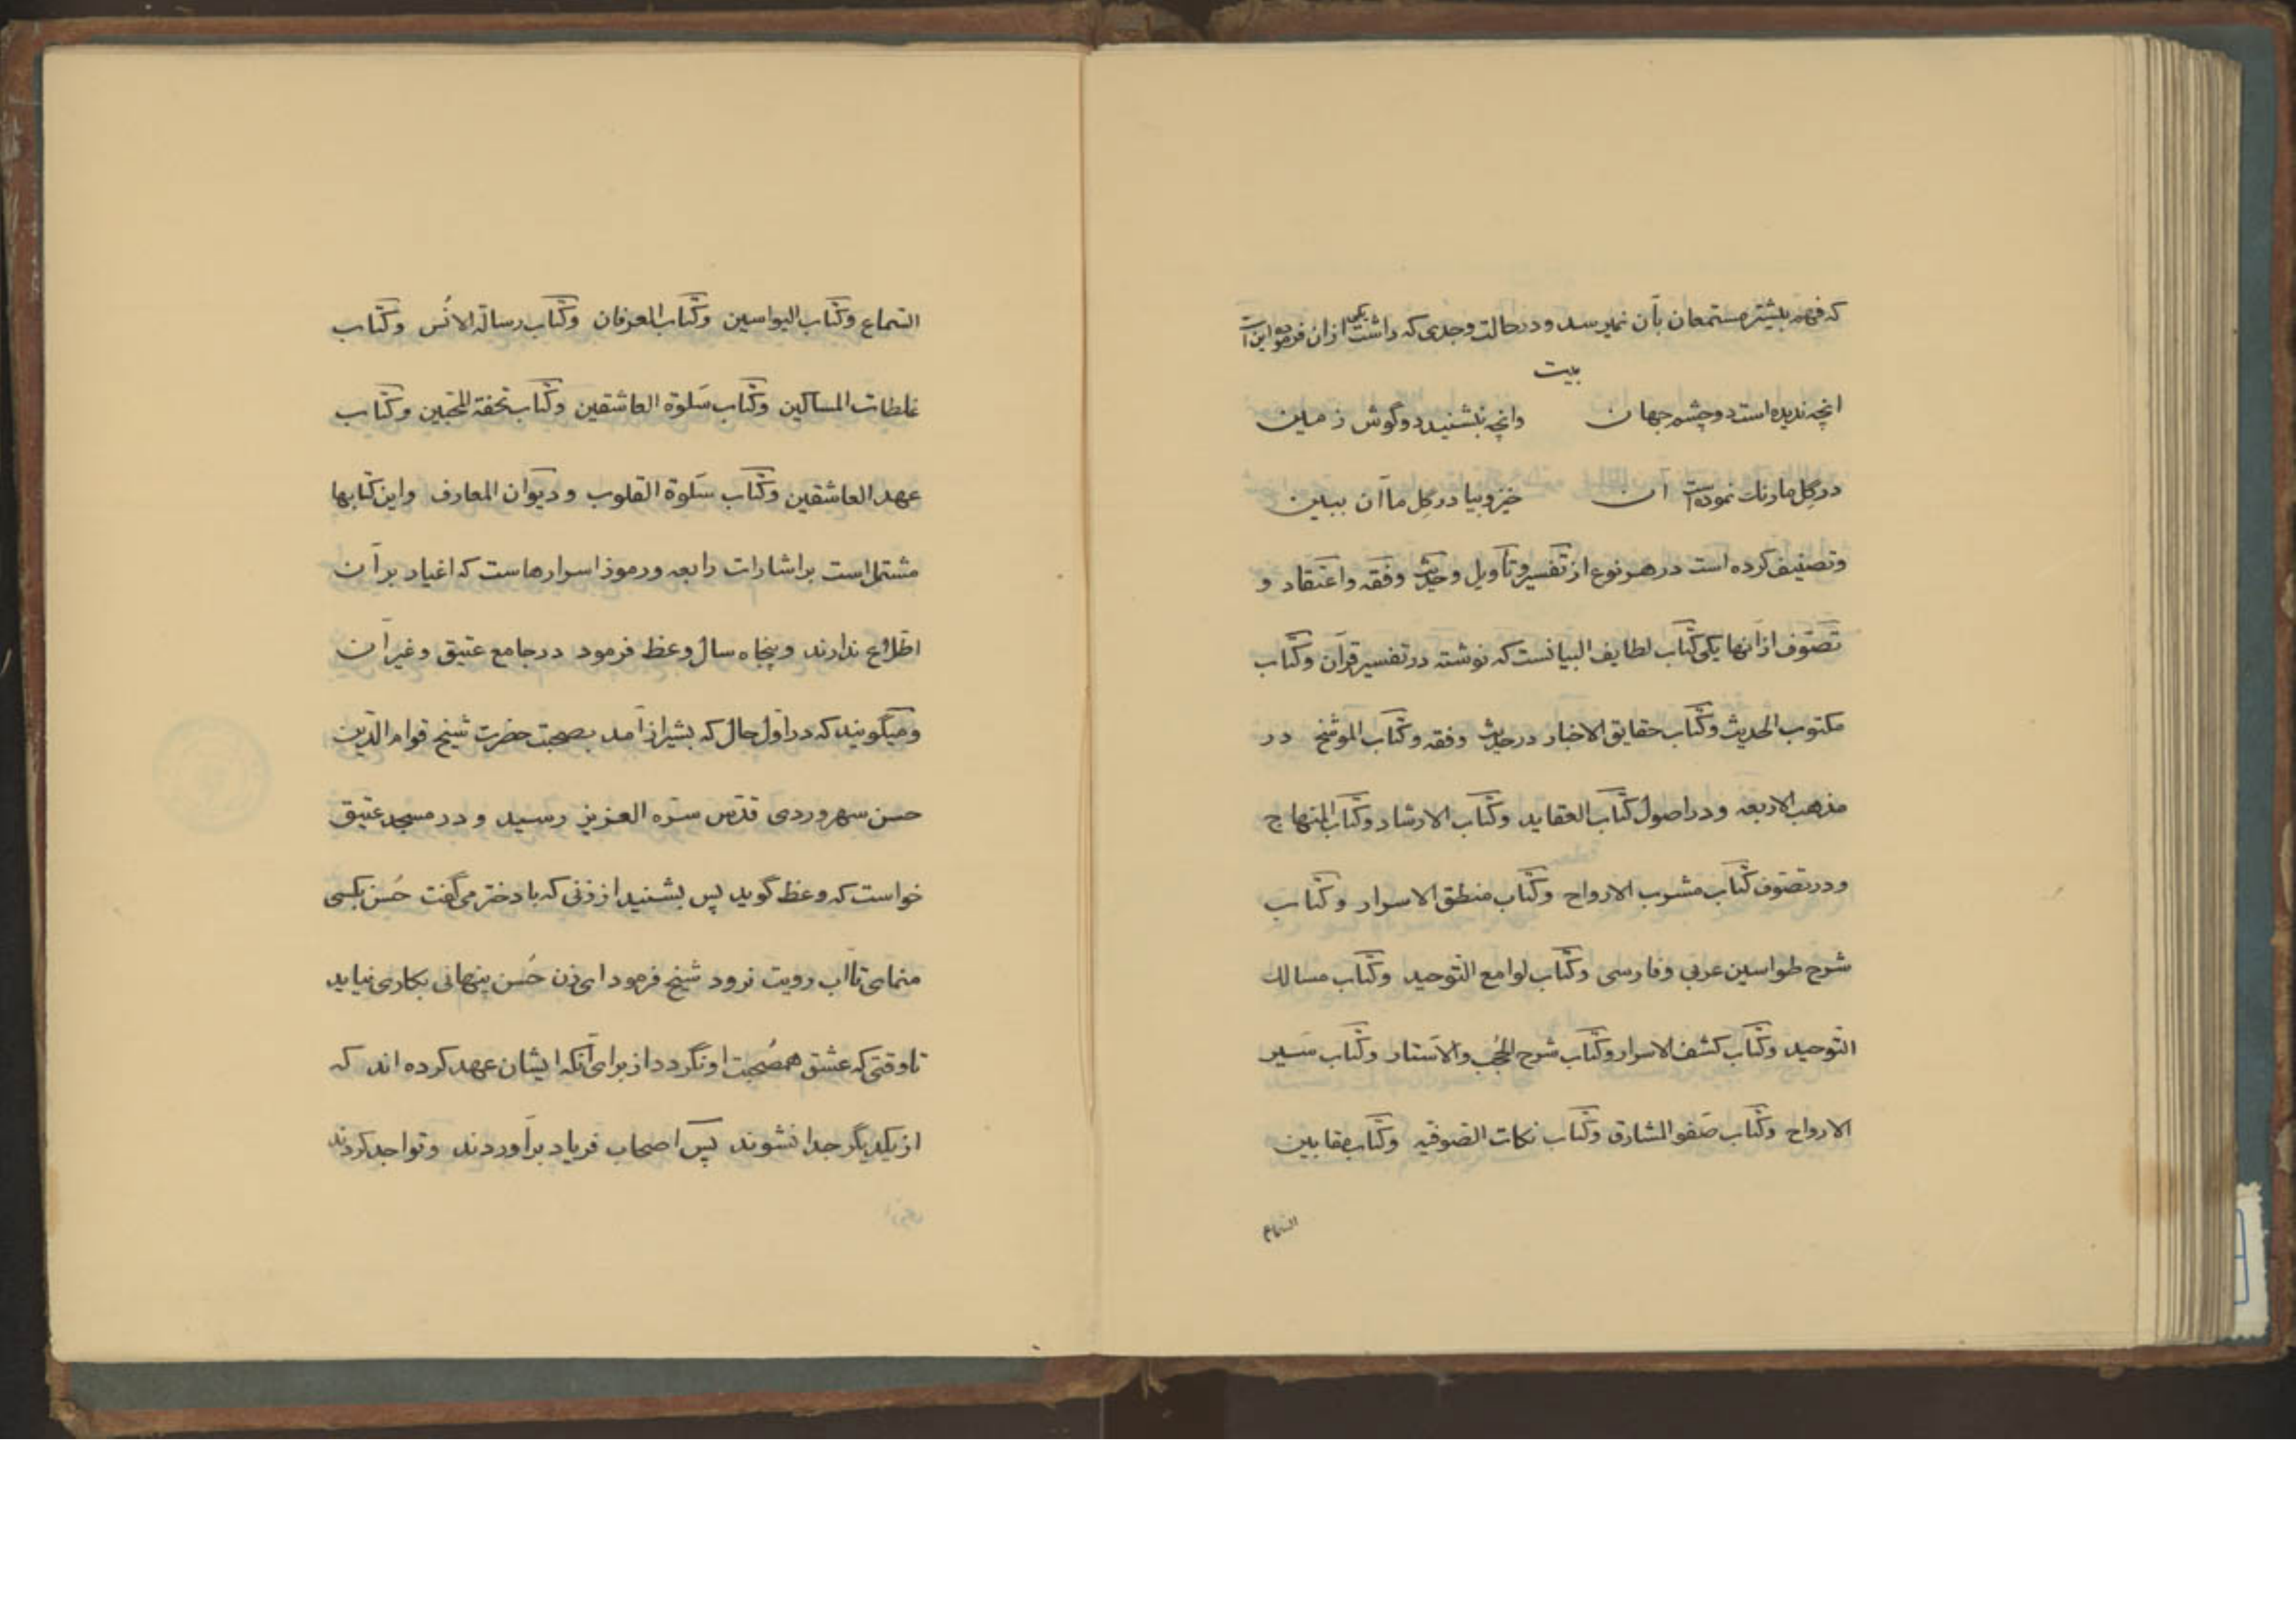 که فهم بیشتر مستمعان بآن نمیرسد و در حالت وجدی که داشت یکی ازان فرموده این است
بیت
انچه ندیده است دو چشم جهان وانچه بنشنید دو گوش زمین
در گل ما رنگ نموده است آن خیز و بیا در گل ما آن ببین
وتصنیف کرده است در هر نوع از تفسیر و تأویل و حدیث وفقه واعتقاد و
تصوّف ازآنها یکی کتاب لطایف البیانست که نوشته در تفسیر قرآن وکتاب
مکتوب الحدیث وکتاب حقایق الاخبار در حدیث وفقه وکتاب الموشّح در
مذهب الاربعه ودر اصول کتاب العقاید وکتاب الارشاد وکتاب المنهاج
ودر تصوّف کتاب مشرب الارواح وکتاب منطق الاسرار وکتاب
شرح طواسین عربی وفارسی وکتاب لوامع التّوحید وکتاب مسالك
التّوحید وکتاب کشف الاسرار وکتاب شرح الحُجب والاستار وکتاب سَیر
الارواح وکتاب صَفو المشارق وکتاب نکات الصّوفیه وکتاب مقابین
السّماع
السّماع وکتاب الیواسین وکتاب العرفان وکتاب رسالة الانُس وکتاب
غلطات المسالکین وکتاب سَلوة العاشقین وکتاب تحفة المحبّین وکتاب
عهد العاشقین وکتاب سَلوة القلوب ودیوان المعارف واین کتابها
مشتمل است بر اشارات رابعه ورموز اسرارهاست که اغیار بر آن
اطّلاع ندارند وپنجاه سال وعظ فرمود در جامع عتیق وغیر آن
ومیگویند که در اوّل حال که بشیراز آمد بصحبت حضرت شیخ قوام الدّین
حسن سهروردی قدّس سرّه العزیز رسید ودر مسجد عتیق
خواست که وعظ گوید پس بشنید از زنی که با دختر می گفت حُسن بکسی
منمای تا آب رویت نرود شیخ فرمود ای زن حُسن پنهانی بکاری نیاید
تا وقتی که عشق همصُحبت او نگردد از برای آنکه ایشان عهد کرده اند که
از یکدیگر جدا نشوند پس اصحاب فریاد برآوردند وتواجد کردند